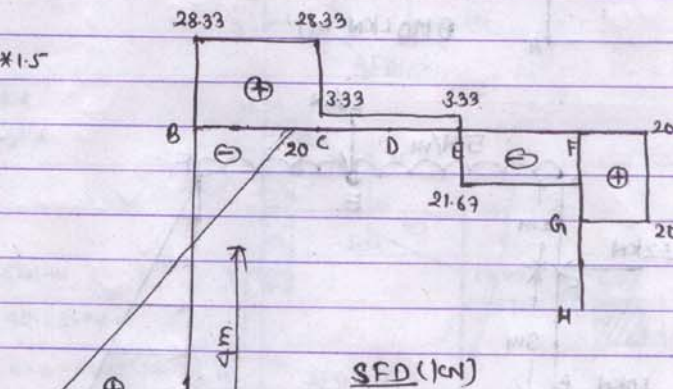 28.33 28.33
*1.5
+
3.33 3.33
B - 20 C D E - F 20
+
21.67
G 20
H
4m
+
SFD (KN)